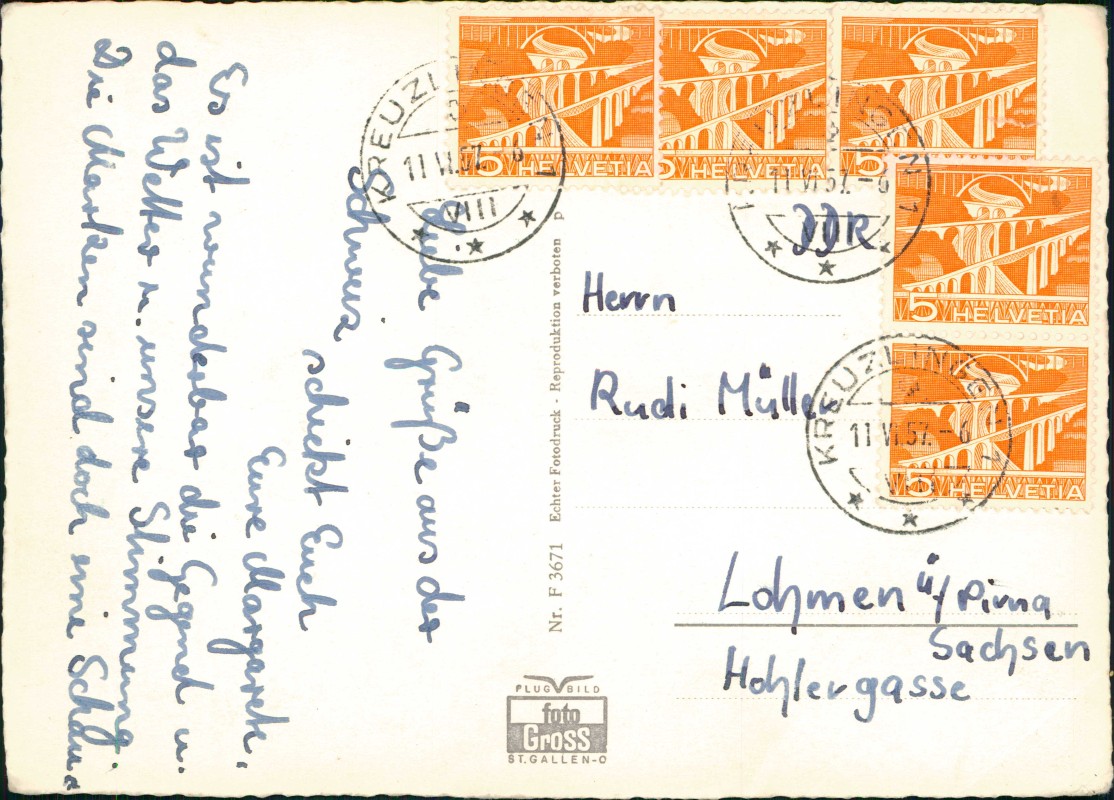 Liebe Grüße aus der
Schweiz schickt Euch
Eure Margarete.
Es ist wunderbar die Gegend u.
das Wetter u. unsere Stimmung.
Die Marken sind doch eine
Nr. F 3671 Echter Fotodruck - Reproduktion verboten p
FLUGBILD
foto
GROSS
ST. GALLEN-O
5 HELVETIA
5 HELVETIA
5 HELVETIA
5 HELVETIA
5 HELVETIA
KREUZLINGEN 1
11 VI.57.-6
VIII
KREUZLINGEN 1
11 VI 57.-6
KREUZLINGEN 1
11 VI.57.-6
DDR
Herrn
Rudi Müller
Lohmen ü/Pirna
Sachsen
Hohlergasse